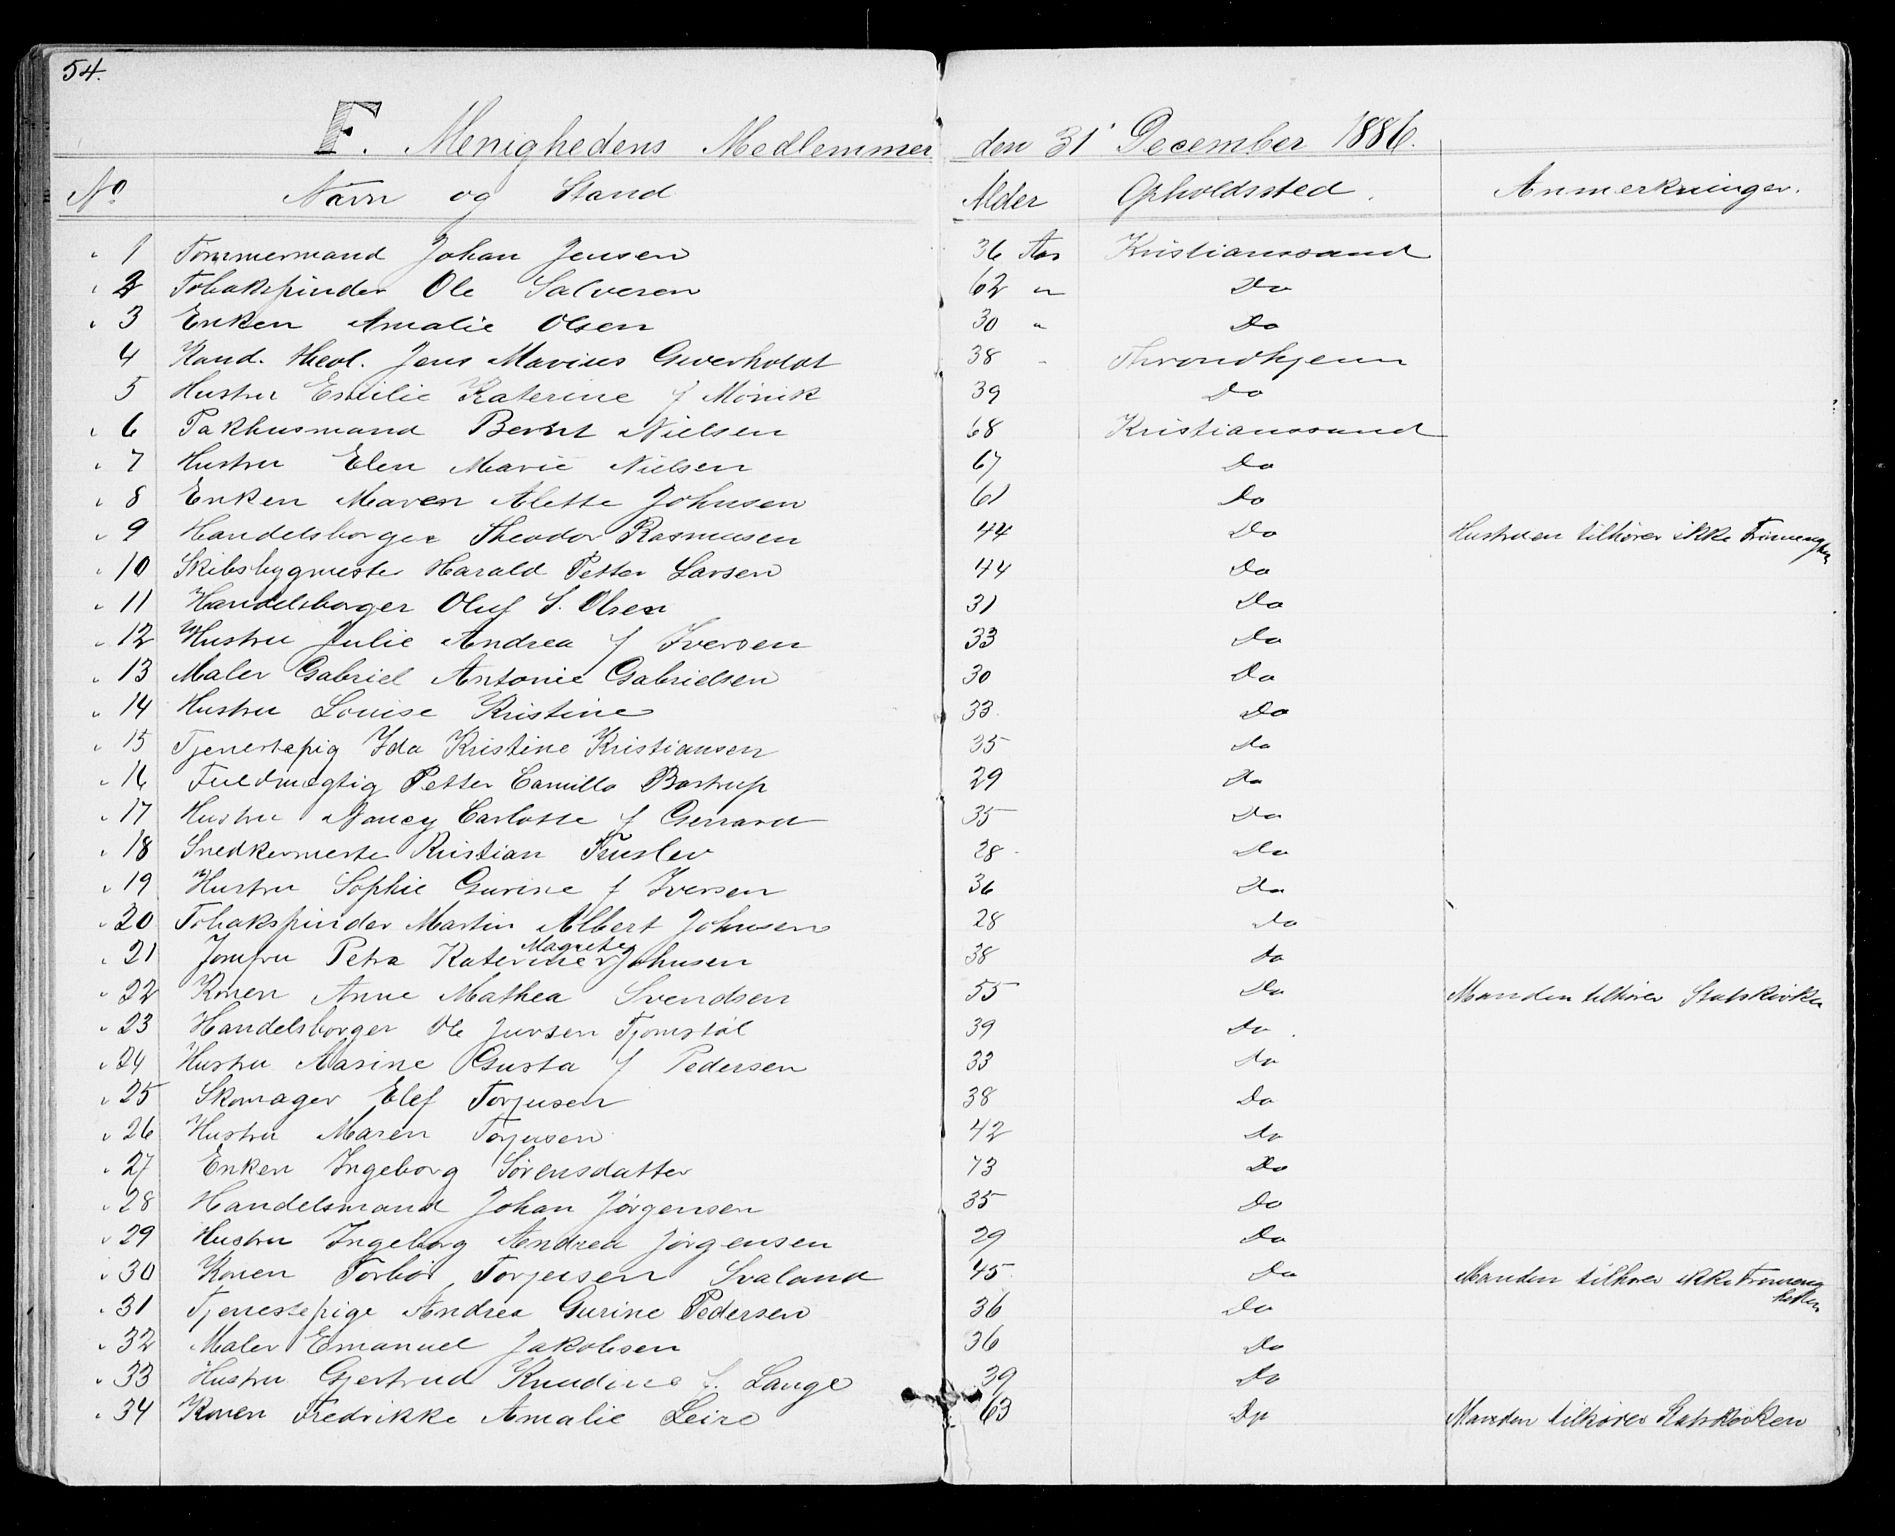 54.
F. Menighedens Medlemmer den 31 December 1886.
No Navn og Stand Alder Opholdssted. Anmerkninger.
" 1 Tømmermand Johan Jensen 36 Aar Kristianssand
" 2 Tobakspinder Ole Salvesen 62 " Do
" 3 Enken Amalie Olsen 30 " Do
4 Kand. theol. Jens Marius Giverholdt 38 " Throndhjem
5 Hustru Emilie Katerine f Mörik 39 Do
" 6 Pakhusmand Bernt Nielsen 68 Kristianssand
" 7 Hustru Elen Marie Nielsen 67 Do
" 8 Enken Maren Alette Johnsen 61 Do
" 9 Handelsborger Theodor Rasmusen 44 Do Hustruen tilhører ikke Frimenigheden
" 10 Skibsbygmester Harald Petter Larsen 44 Do
" 11 Handelsborger Oluf S. Olsen 31 Do
" 12 Hustru Julie Andrea f Iversen 33 Do
" 13 Maler Gabriel Antonie Gabrielsen 30 Do
" 14 Hustru Louise Kristine 33 Do
" 15 Tjenestepig Ida Kristine Kristiansen 35 do
" 16 Fuldmægtig Petter Camillo Bastrup 29 Do
" 17 Hustru Nancy Carlotte f Gerrard 35 Do
" 18 Snedkermester Kristian Fuslev 28 Do
" 19 Hustru Sophie Gurine f Iversen 36 Do
" 20 Tobakspinder Martin Albert Johnsen 28 Do
" 21 Jomfru Petra Katerine Magrete Johnsen 38 Do
" 22 Konen Anne Mathea Svendsen 55 Do Manden tilhører Statskirken
" 23 Handelsborger Ole Jensen Tjomstøl 39 Do
" 24 Hustru Aasine Gusta f Pedersen 33 Do
" 25 Skomager Elef Torjusen 38 Do
" 26 Hustru Maren Torjusen 42 Do
" 27 Enken Ingeborg Sørensdatter 73 Do
" 28 Handelsmand Johan Jørgensen 35 Do
" 29 Hustru Ingeborg Andrea Jørgensen 29 Do
" 30 Konen Torbør Torjeisen Svaland 45 Do Manden tilhører ikke Frimenigheden
" 31 Tjenestepige Andrea Gurine Pedersen 36 Do
" 32 Maler Emanuel Jakobsen 36 Do
" 33 Hustru Gjertrud Knudine f. Lange 39 Do
" 34 Konen Fredrikke Amalie Leire 63 Do Manden tilhører Statskirken